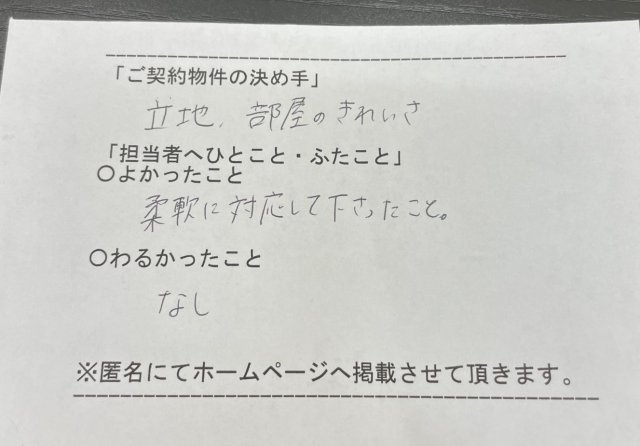 「ご契約物件の決め手」
立地、部屋のきれいさ
「担当者へひとこと・ふたこと」
○よかったこと
柔軟に対応して下さったこと。
○わるかったこと
なし
※匿名にてホームページへ掲載させて頂きます。